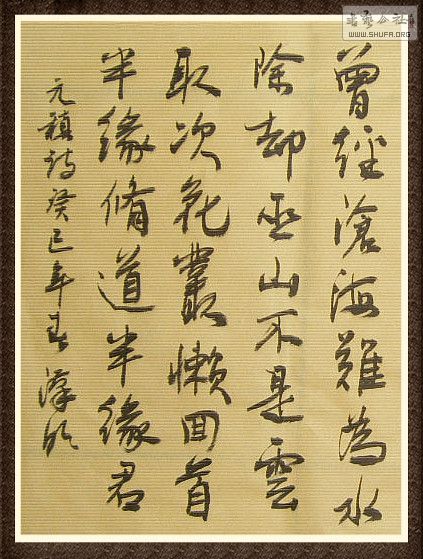 曾經滄海難為水
除却巫山不是雲
取次花叢懶回首
半緣脩道半緣君
元稹詩癸巳年春
书艺公社
WWW.SHUFA.ORG